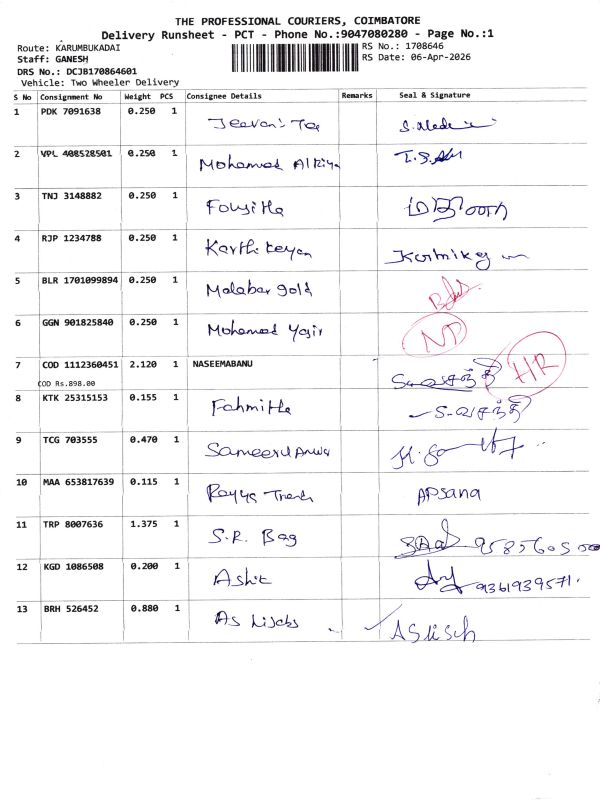 THE PROFESSIONAL COURIERS, COIMBATORE
Delivery Runsheet - PCT - Phone No.:9047080280 - Page No.:1
Route: KARUMBUKADAI RS No.: 1708646
Staff: GANESH RS Date: 06-Apr-2026
DRS No.: DCJB170864601
Vehicle: Two Wheeler Delivery
S No Consignment No Weight PCS Consignee Details Remarks Seal & Signature
1 PDK 7091638 0.250 1 Jeevan's Tex
2 VPL 408528501 0.250 1 Mohamed Al Riya
3 TNJ 3148882 0.250 1 Foujitha
4 RJP 1234788 0.250 1 Karthikeyan Karthikeyan
5 BLR 1701099894 0.250 1 Malabar gold
6 GGN 901825840 0.250 1 Mohamed Yasir ND
7 COD 1112360451 2.120 1 NASEEMABANU S. வசந்தி HR
COD Rs.898.00
8 KTK 25315153 0.155 1 Fahmitha S. வசந்தி
9 TCG 703555 0.470 1 Sameeru
10 MAA 653817639 0.115 1 Rayya Trends Apsana
11 TRP 8007636 1.375 1 S.R. Bag
12 KGD 1086508 0.200 1 Ashik 9361939571.
13 BRH 526452 0.880 1 As hijabs